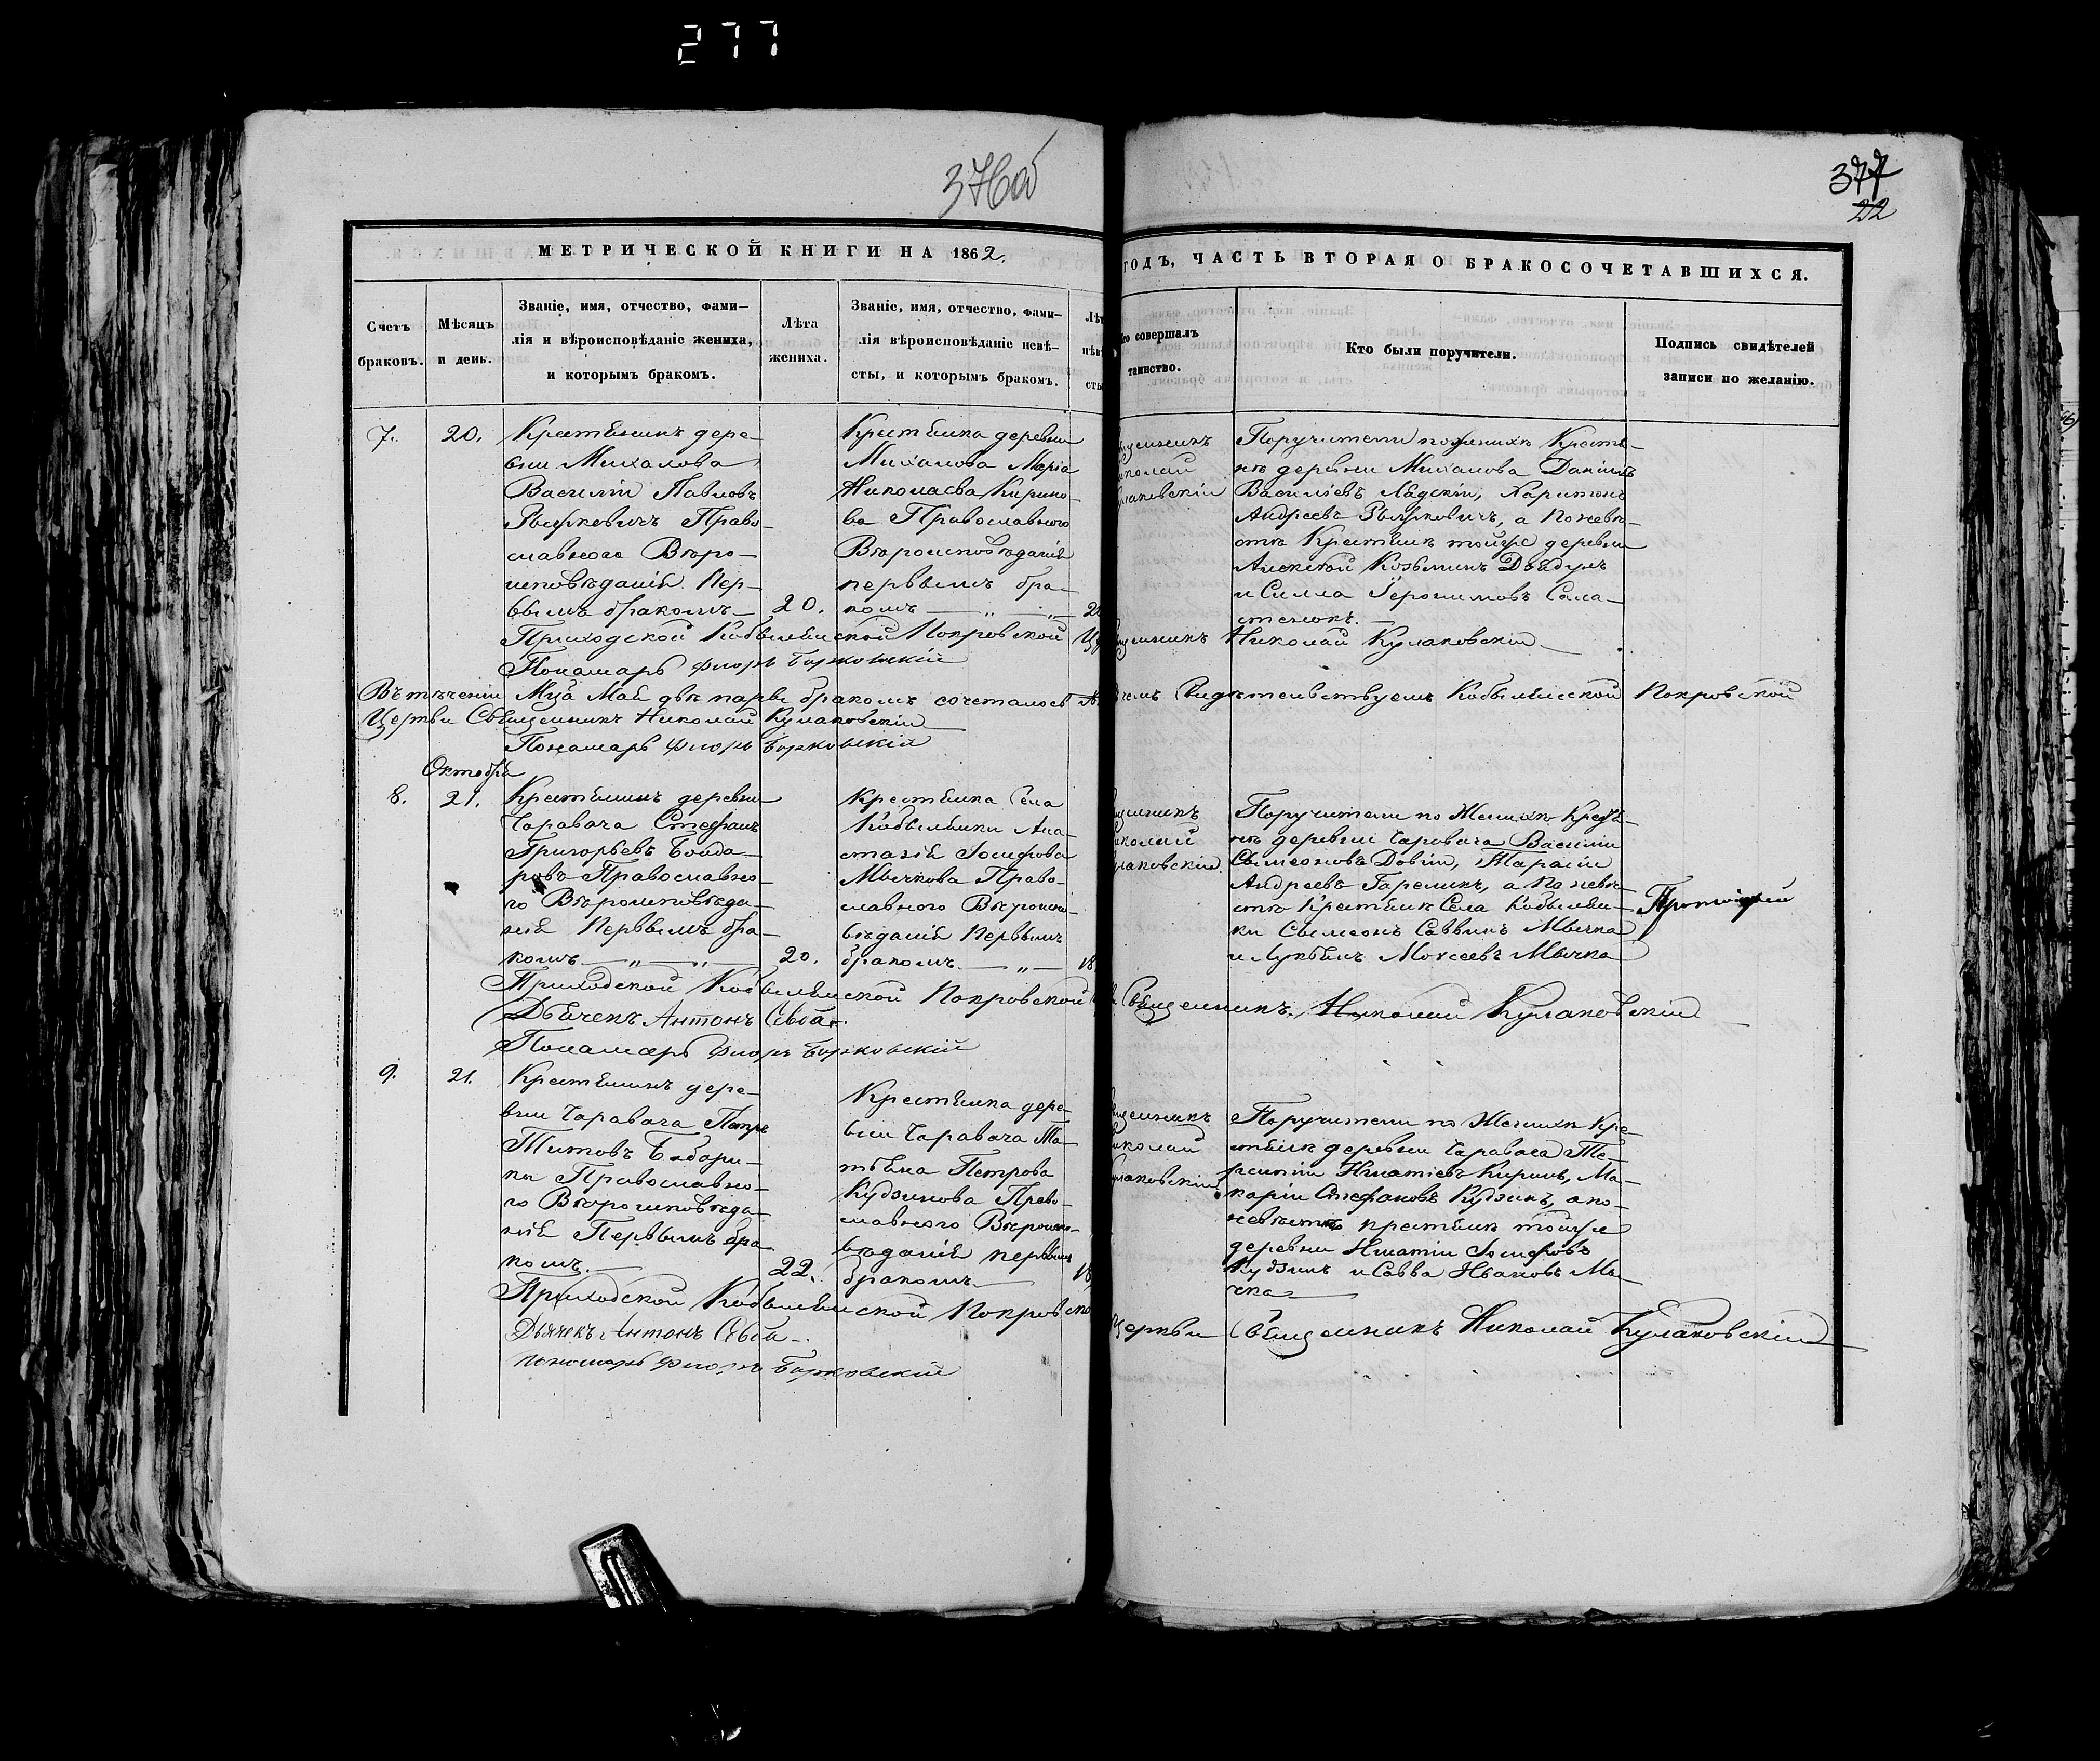 277
376об
377
22
МЕТРИЧЕСКОЙ КНИГИ НА 1862.
ГОДЪ, ЧАСТЬ ВТОРАЯ О БРАКОСОЧЕТАВШИХСЯ.
Счетъ браковъ.
Мѣсяцъ и день.
Званіе, имя, отчество, фами-
лія и вѣроисповѣданіе жениха,
и которымъ бракомъ.
Лѣта
жениха.
Званіе, имя, отчество, фами-
лія вѣроисповѣданіе невѣ-
сты, и которымъ бракомъ.
совершалъ
таинство.
Кто были поручители.
Подпись свидѣтелей
записи по желанію.
7.
20.
Крестьянинъ дере-
вни Михалова
Василій Павловъ
Православнаго Вѣро-
исповѣданія. Пер-
вымъ бракомъ
20.
Крестьянка деревни
Михалова Марія
Николаева Кирико-
ва Православнаго
Вѣроисповѣданія
первымъ бра-
комъ
Поручители по женихѣ Крестья-
нѣ деревни Михалова Даніилъ
Василіевъ Харитонъ
Андреевъ а по невѣ-
стѣ Крестьяне тойже деревни
Алексѣй Козьминъ
и Силла Іеронимовъ
Приходской Кобыльникской Покровской
Николай Кулаковскій
Понамарь Флоръ Борковскій
Въ теченіи Мца Мая двѣ пары бракомъ сочеталось
Свидѣтельствуемъ Кобыльникской Покровской
Церкви Священникъ Николай Кулаковскій
Понамарь Флоръ Борковскій
Октября
8.
21.
Крестьянинъ деревни
Чаравача Стефанъ
Григорьевъ Бонда-
ровъ Православна-
го Вѣроисповѣда-
нія Первымъ бра-
комъ
20.
Крестьянка Села
Кобыльники Ана-
стасія Іосифова
Мычкова Право-
славнаго Вѣроиспо-
вѣданія Первымъ
бракомъ
18
Поручители по Женихѣ Крестья-
нѣ деревни Чаравача Василій
Сымеоновъ Довгій, Тарасій
Андреевъ Гареликъ, а по невѣ-
стѣ Крестьяне Села Кобыльни-
ки Сымеонъ Саввинъ Мычка
и Лукьянъ Моисеевъ Мычка
Приходской Кобыльникской Покровской
Священникъ Николай Кулаковскій
Дьячекъ Антонъ
Понамарь Флоръ Борковскій
9.
21.
Крестьянинъ дере-
вни Чаравача Петръ
Титовъ
Православна-
го Вѣроисповѣда-
нія Первымъ бра-
комъ.
22.
Крестьянка дере-
вни Чаравача Та-
тьяна Петрова
Кудзинова Право-
славнаго Вѣроиспо-
вѣданія первымъ
бракомъ
18
Поручители по Женихѣ Кре-
стьяне деревни Чаравача Те-
рентій Игнатіевъ Ма-
карій Стефановъ Кудзинъ, а по
невѣстѣ крестьяне тойже
деревни Игнатій Іосифовъ
Кудзинъ и Савва Ивановъ Мы-
чка
Приходской Кобыльникской Покровской
Церкви Священникъ Николай Кулаковскій
Дьячекъ Антонъ
Понамарь Флоръ Борковскій